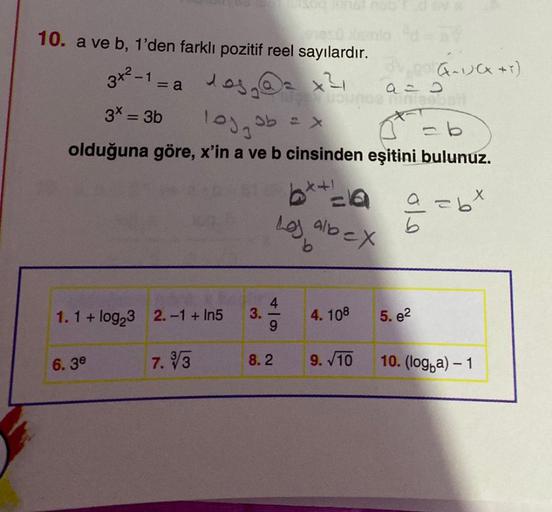 10. a ve b, 1'den farklı pozitif reel sayılardır.
3^(x²-1) = a   log₃a = x²-1   a = 3^((x-1)(x+1))
3^x = 3b   log₃3b = x   3^(x-1) = b
olduğuna göre, x'in a ve b cinsinden eşitini bulunuz.
b^(x+1) = a   a/b = b^x
log_b a/b = x
1. 1 + log₂3   2. -1 + ln5   3. 4/9   4. 10⁸   5. e²
6. 3^e   7. ∛3   8. 2   9. √10   10. (log_b a) - 1